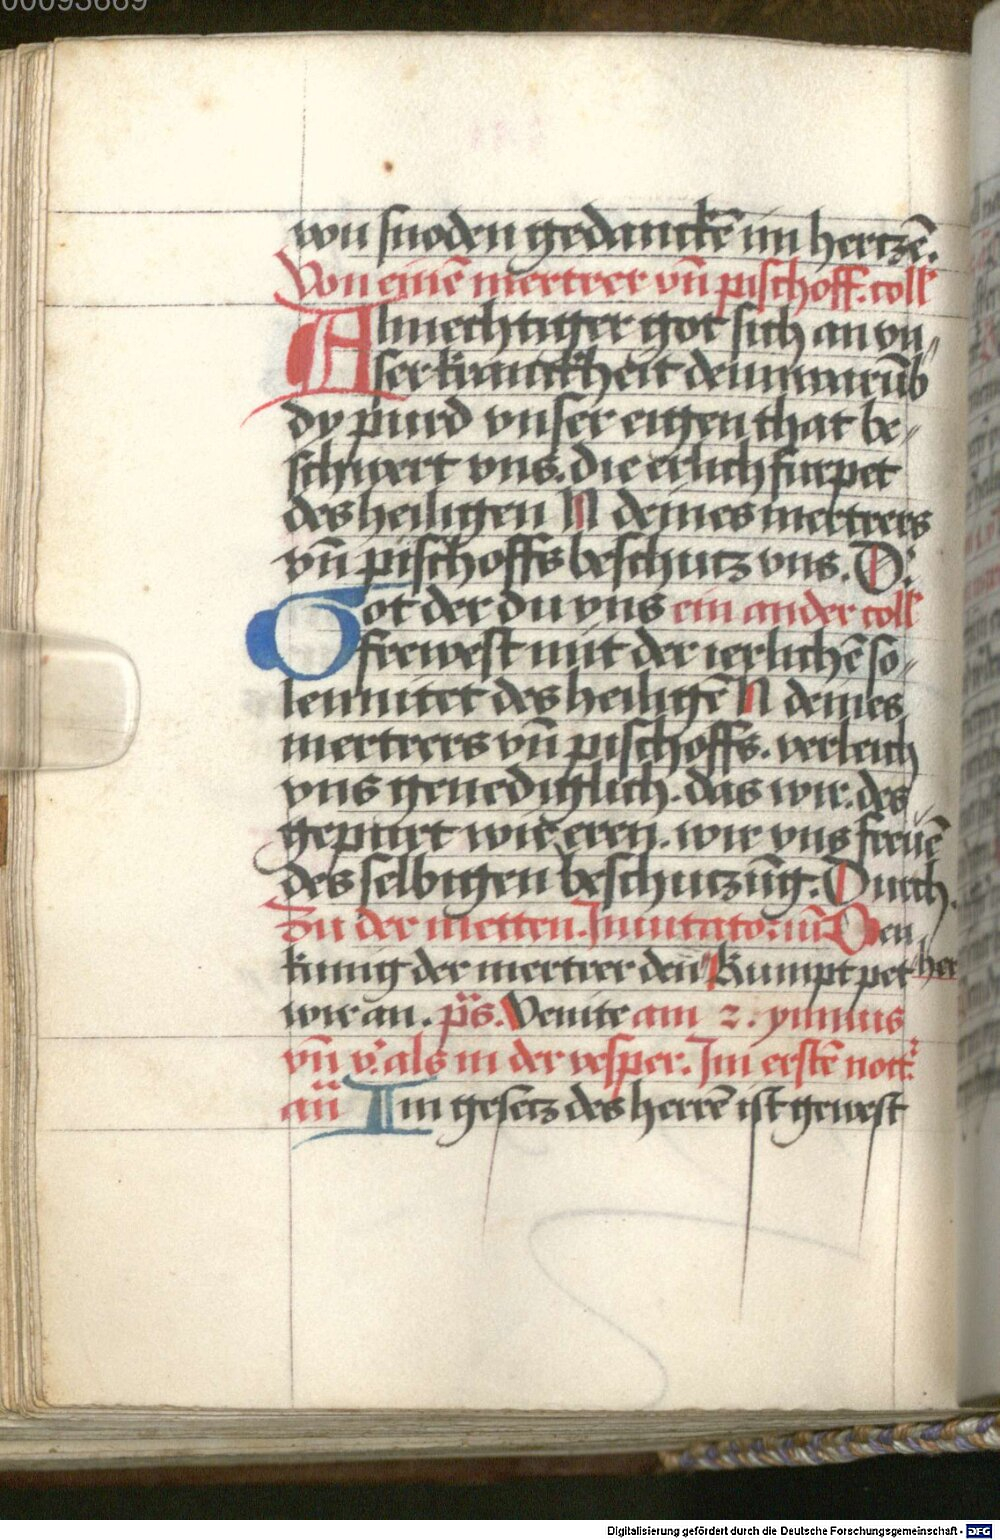 00093669
von snoden gedanckē im hertzē.
Von einē mertrer vn̄ pischoff. coll'
Almechtiger got sich an vn„
ser kranckheit dann warūb
dy purd vnser eigen that be„
schwert vns. die erlich furpet
des heiligen N deines mertrers
vn̄ pischoffs beschutz vns. D.
Got der du vns ein ander coll'
frewest mit der ierlichē so„
lennitet des heiligē N deines
mertrers vn̄ pischoffs. verleich
vns genediglich. das wir. des
gepurt wir eren. wir vns frewē
des selbigen beschutzūg. Durch.
Zu der metten. Inuitatoriū Den
kunig der mertrer den Kumpt pet her
wir an. ps. Venite am 2. ymnus
vn̄ v. als in der vesper. Im erstē noct'
an̄ Im gesetz des herrē ist gewest
Digitalisierung gefördert durch die Deutsche Forschungsgemeinschaft - DFG